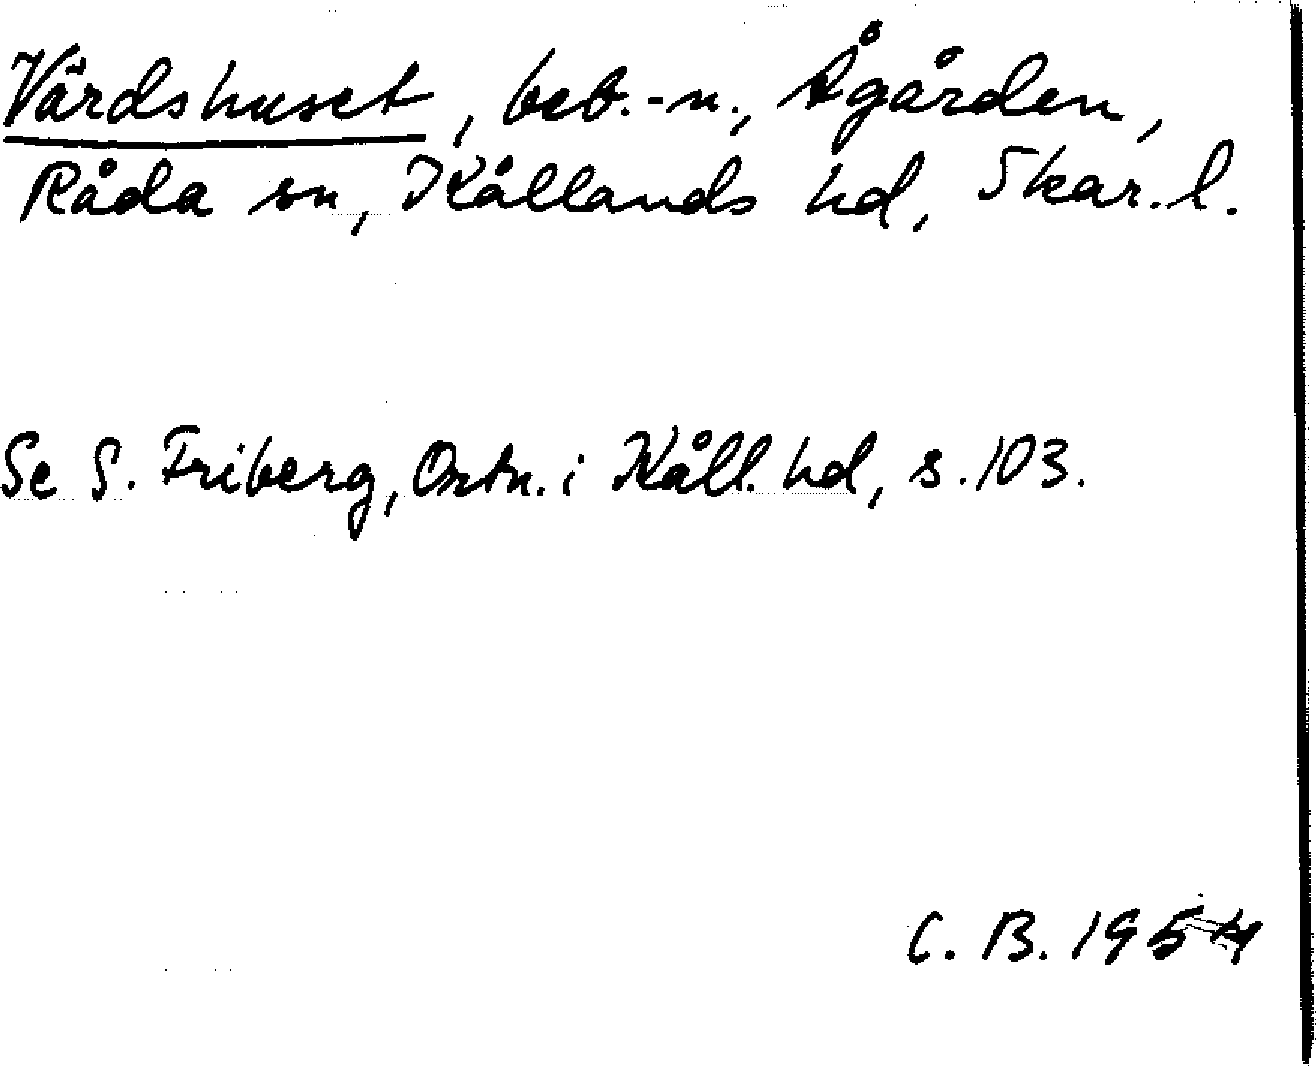 Värdshuset, beb.-n., Ågården,
Råda sn, Kållands hd, Skar. l.
Se S. Friberg, Ortn. i Kåll. hd, s. 103.
C. B. 1954